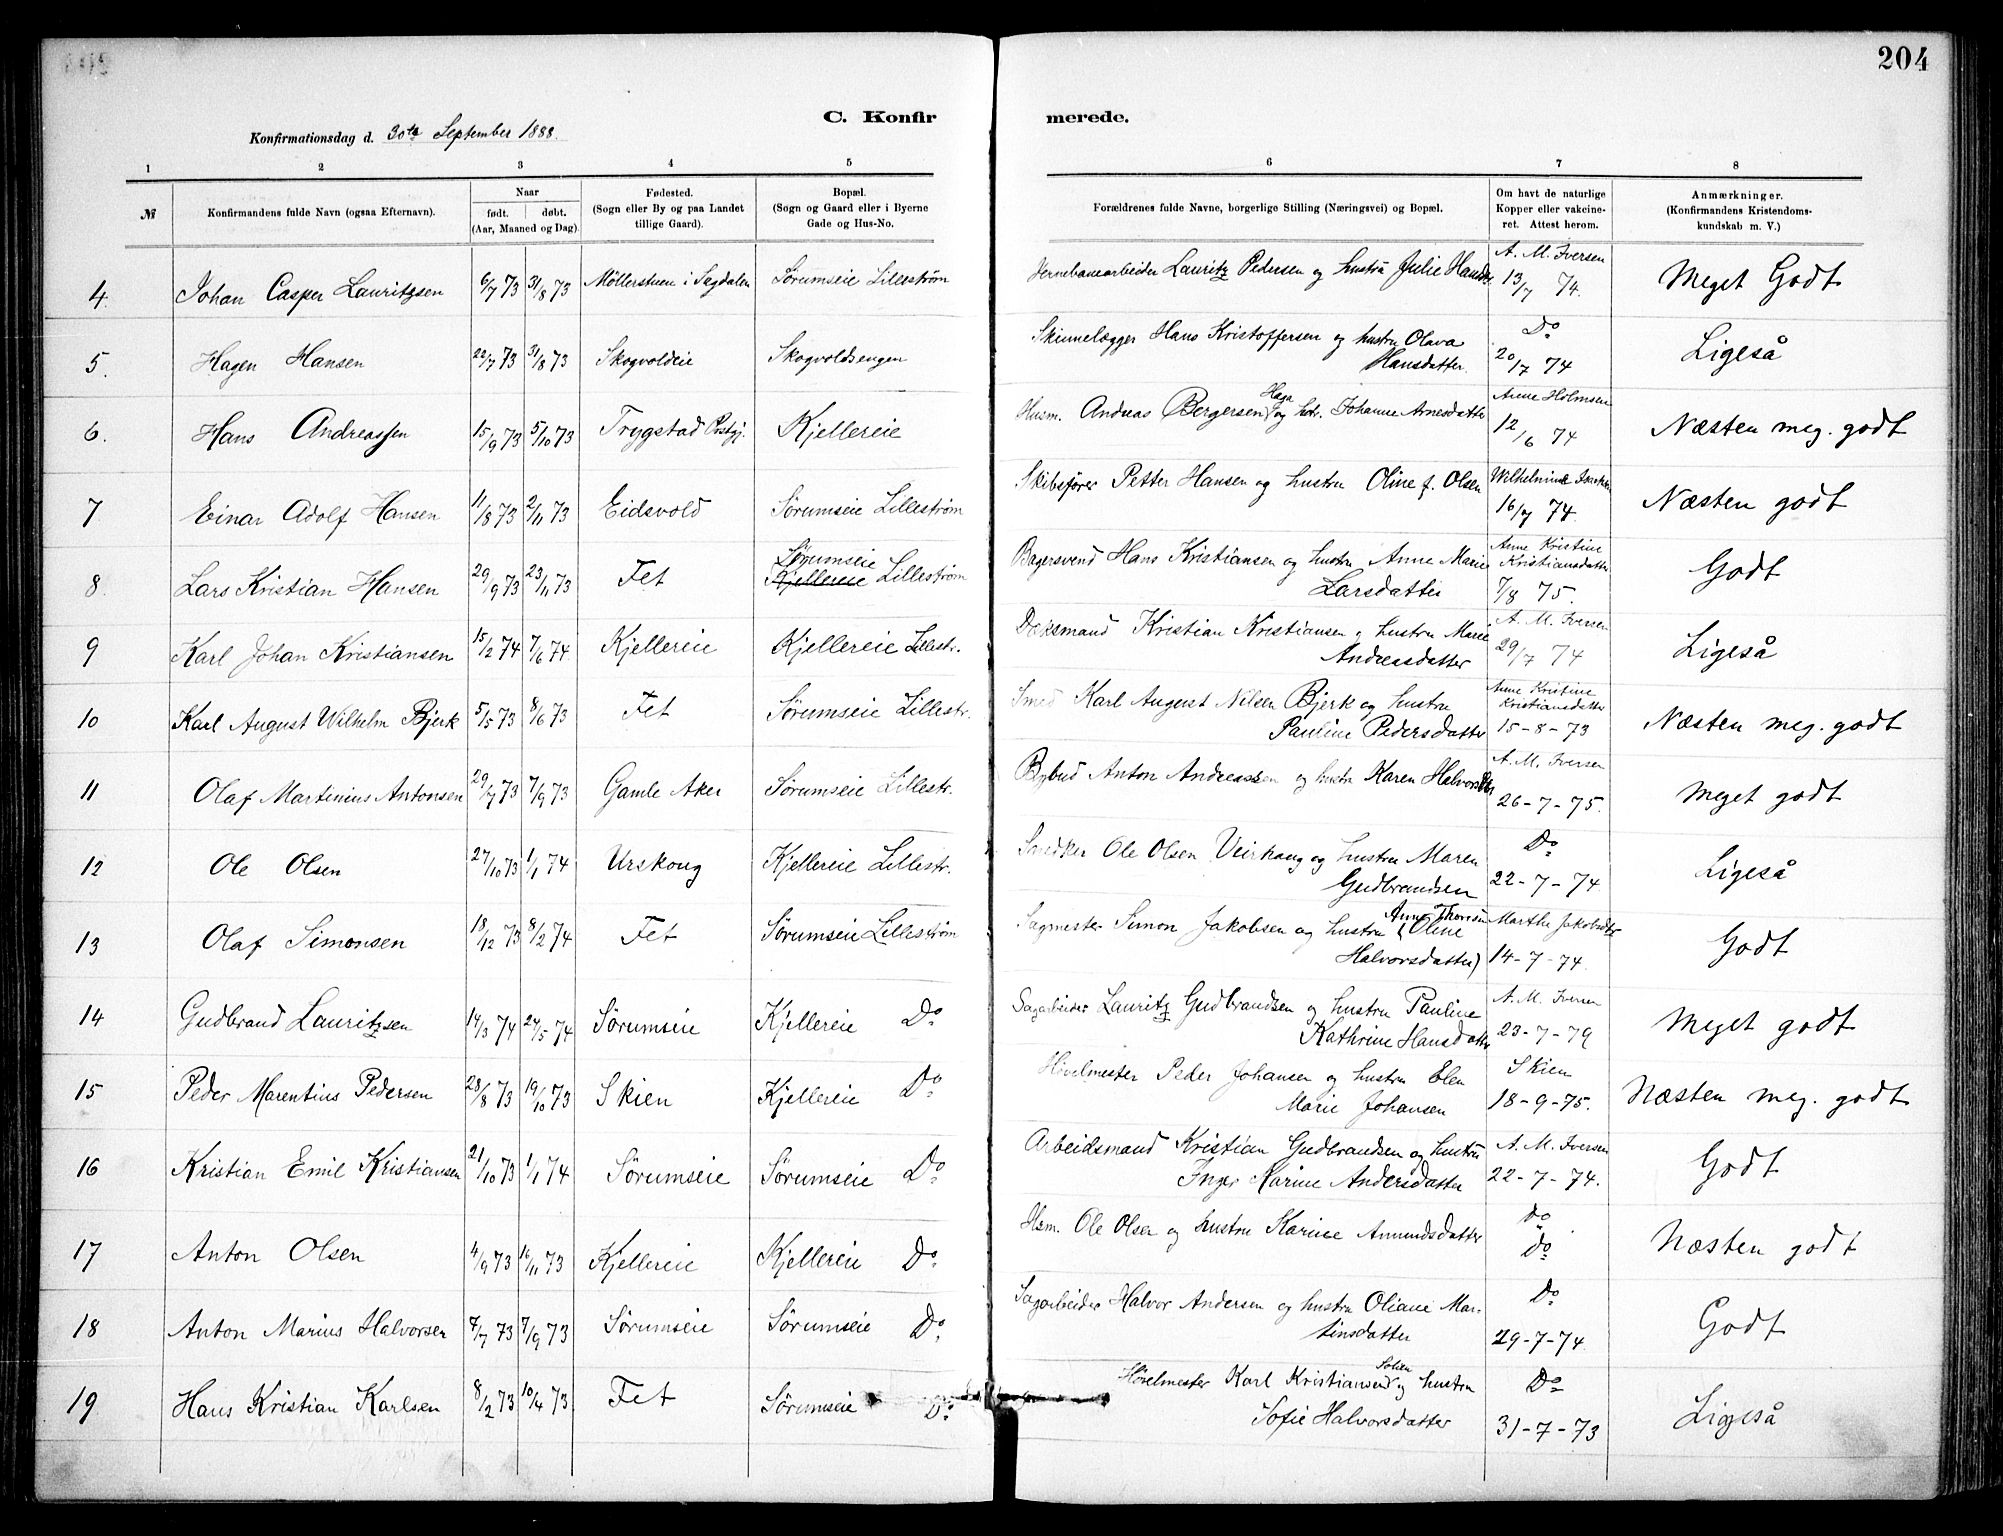 204
C. Konfir merede.
Konfirmationsdag d. 30te September 1888.
1 2 3 4 5 6 7 8
№ Konfirmandens fulde Navn (ogsaa Efternavn). Naar født. døbt. (Aar, Maaned og Dag). Fødested. (Sogn eller By og paa Landet tillige Gaard). Bopæl. (Sogn og Gaard eller i Byerne Gade og Hus-No. Forældrenes fulde Navne, borgerlige Stilling (Næringsvei) og Bopæl. Om havt de naturlige Kopper eller vakcineret. Attest herom. Anmærkninger. (Konfirmandens Kristendomskundskab m. V.)
4. Johan Casper Lauritzsen 6/7 73 31/8 73 Möllerstuen i Sagdalen Sörumseie Lilleström Jernebanearbeider Lauritz Pedersen og hustru Julie A. M. Iversen 13/7 74. Meget Godt
5. Hagen Hansen 22/7 73 31/8 73 Skogvoldeie Skogvoldsengen Skinnelægger Hans Kristoffersen og hustru Olava Hansdatter. Do 20/7 74 Ligeså
6. Hans Andreassen 15/9 73 5/10 73 Trygstad Præstgj. Kjellereie Husm. Andreas Bergersen Haga og hst. Johanne Arnesdatter Anne Holmsen 12/6 74 Næsten meg. godt
7 Einar Adolf Hansen 11/8 73 2/11 73 Eidsvold Sörumseie Lilleström Skibsförer Petter Hansen og hustru Oline f. Olsen Wilhelmine 16/7 74. Næsten godt
8. Lars Kristian Hansen 29/9 73 23/11 73 Fet Sörumseie Kjellereie Lilleström Bagersvend Hans Kristiansen og hustru Anne Marie Larsdatter Anne Kristine Kristiansdatter 7/8 75. Godt
9 Karl Johan Kristiansen 15/2 74 7/6 74 Kjellereie Kjellereie Lillestr. Kristian Kristiansen og hustru Marie Andreasdatter A. M. Iversen 29/7 74 Ligeså
10 Karl August Wilhelm Bjerk 5/5 73 8/6 73 Fet Sörumseie Lillestr. Smed Karl August Nilsen Bjerk og hustru Pauline Pedersdatter Anne Kristine Kristiansdatter 15-8-73 Næsten meg. godt
11 Olaf Martinius Antonsen 29/7 73 7/9 73 Gamle Aker Sörumseie Lillestr. Bybud Anton Andreassen og hustru Karen Halvorsdtr A. M. Iversen 26-7-75. Meget godt
12 Ole Olsen 27/10 73 1/1 74 Urskoug Kjellereie Lillestr. Snedker Ole Olsen og hustru Maren Gudbrandsen Do 22-7-74 Ligeså
13 Olaf Simonsen 18/12 73 8/2 74 Fet Sörumseie Lilleström Sagmester Simon Jakobsen og hustru Anne (Oline Halvorsdatter) Marthe Jakobsdtr 14-7-74. Godt
14 Gudbrand Lauritzsen 14/3 74 24/5 74 Sörumseie Kjellereie Do Sagarbeider Lauritz Gudbrandsen og hustru Pauline Kathrine Hansdatter A. M. Iversen 23-7-79 Meget godt
15 Peder Marentius Pedersen 28/8 73 19/10 73 Skien Kjellereie Do Hövelmester Peder Johansen og hustru Elen Marie Johansen Skien 18-9-75. Næsten meg. godt
16 Kristian Emil Kristiansen 21/10 73 1/1 74 Sörumseie Sörumseie Do Arbeidsmand Kristian Gudbrandsen og hustru Inger Karine Andersdatter A. M. Iversen 22-7-74. Godt
17 Anton Olsen 4/9 73 16/11 73 Kjellereie Kjellereie Do Hsm. Ole Olsen og hustru Karine Amundsdatter Do Do Næsten godt
18 Anton Marius Halvorsen 7/7 73 7/9 73 Sörumseie Sörumseie Do Sagarbeider Halvor Andersen og hustru Oliane Martinsdatter Do 29-7-74. Godt
19 Hans Kristian Karlsen 8/2 73 10/4 73 Fet Sörumseie Do Hövelmester Karl Kristiansen og hustru Sofie Halvorsdatter Do 31-7-73 Ligeså